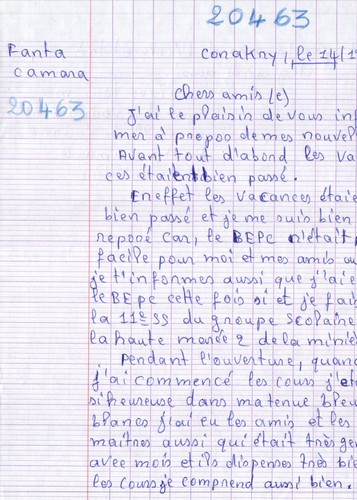 20463
Fanta
camara
conakry, le 14/1
20463
chers amis (e)
J'ai le plaisir de vous inf
mer à propoo de mes nouvel
Avant tout d'abord les va
ces étaient bien passé.
En effet les vacances étaie
bien passé et je me suis bien
reposé car, le BEPC n'était
facile pour moi et mes amis au
je t'informes aussi que j'ai e
le BEPC cette fois si et je fai
la 11e SS du groupe scolaire
la haute marée 2 de la miniè
Pendant l'ouverture, quand
j'ai commencé les cours j'eta
si heureuse dans ma tenue bleu
blancs j'ai eu les amis et les
maîtres aussi qui était très ge
avec mois et ils dispenses très bi
les cours je comprend aussi bien.